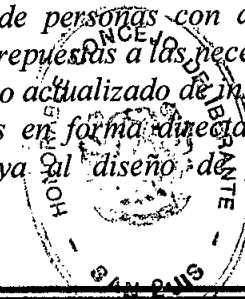 de personas con
repuestas a las nece
o actualizado de in
s en forma directa
ya al diseño de
HONORABLE CONCEJO DELIBERANTE
SAN LUIS